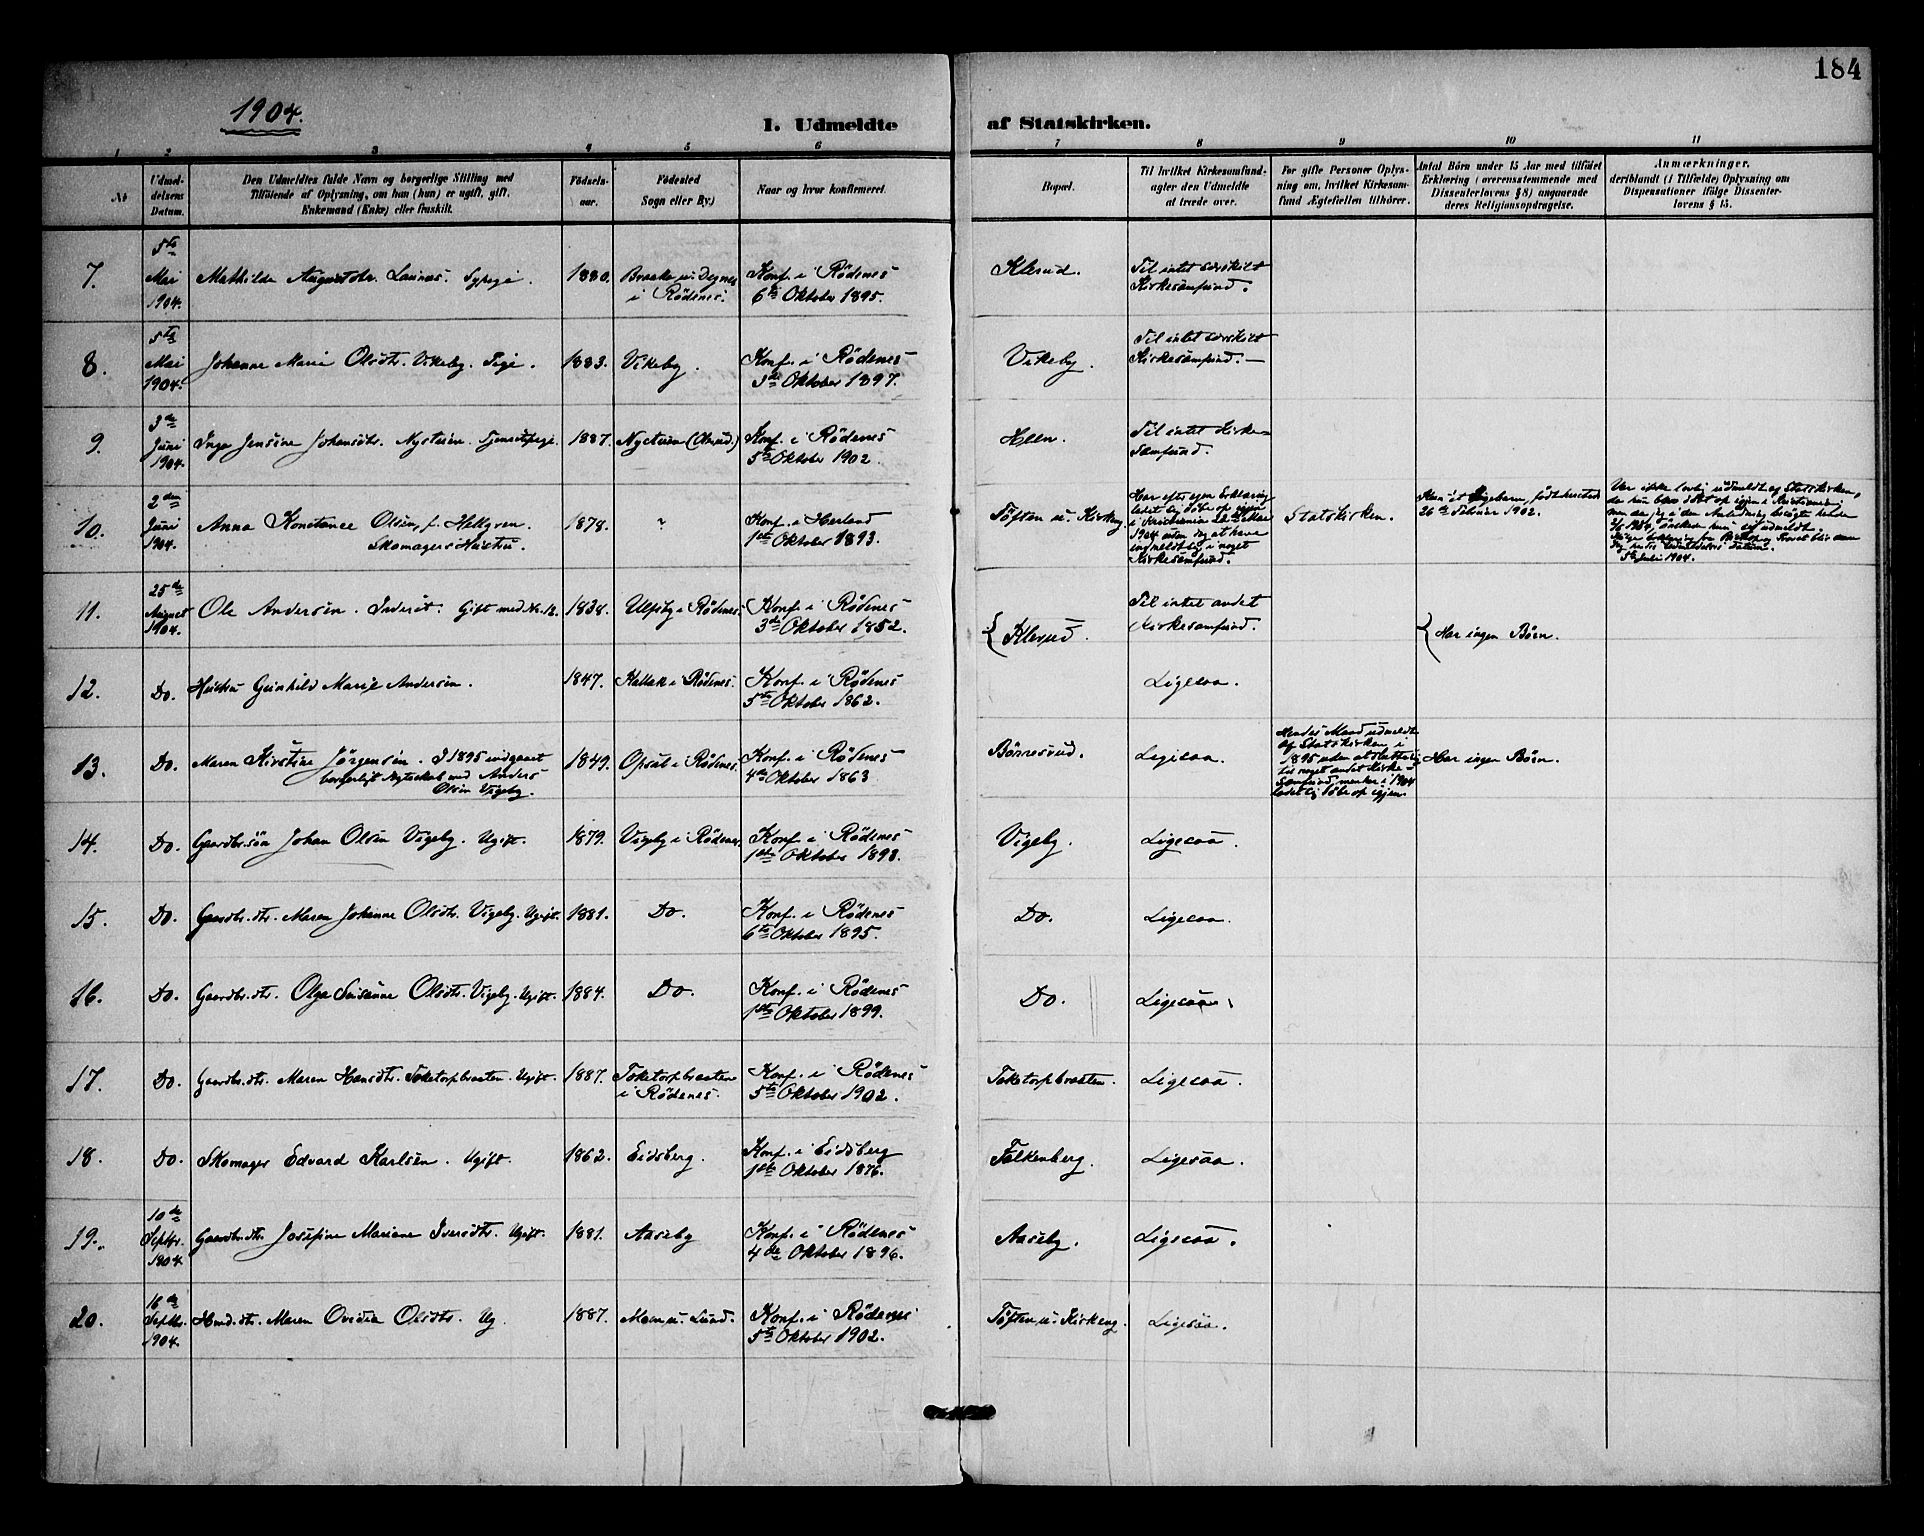 184
1904.
1. Udmeldte af Statskirken.
1 2 3 4 5 6 7 8 9 10 11
No
Udmel-
delsens
Datum.
Den Udmeldtes fulde Navn og borgerlige Stilling med
Tilföiende af Oplysning, om han (hun) er ugift, gift,
Enkemand (Enke) eller fraskilt.
Födsels-
aar.
Födested
Sogn eller By.)
Naar og hvor konfirmeret.
Bopæl.
Til hvilket Kirkesamfund-
agter den Udmeldte
at træde over.
For gifte Personer Oplys-
ning om, hvilket Kirkesam-
fund Ægtefællen tilhörer.
Antal Börn under 15 Aar med tilföiet
Erklæring (overensstemmende med
Dissenterlovens § 8) angaaende
deres Religionsopdragelse.
Anmærkninger.
deriblandt (i Tilfælde) Oplysning om
Dispensationer ifölge Dissenter-
lovens § 15.
7.
5te
Mai
1904.
Mathilde Augustdtr.
1880.
i Rödenes.
Konf. i Rödenes
6te Oktober 1895.
Klerud.
Til intet særskilt
Kirkesamfund.
8.
5te
Mai
1904.
Johanne Marie Olsdtr. Vikeby. Pige.
1883.
Vikeby.
Konf. i Rödenes
3die Oktober 1897.
Vikeby.
Til intet særskilt
Kirkesamfund. —
9.
3de
Juni
1904.
Inga Jensine Johansdtr. Nystuen. Tjenestepige.
1887.
Nystuen
Konf. i Rödenes
5te Oktober 1902.
Heen.
Til intet Kirke-
samfund.
10.
2den
Juni
1904.
Anna Konstance Olsen, f. Hellgren.
Skomagers Hustru.
1878.
"
Konf. i Herland
1ste Oktober 1893.
Töften u. Kirkeng
Har efter egen Erklæring
ladet sig döbe op igjen
i Kristiania
1904 uden dog at have
indmeldt sig i noget
Kirkesamfund.
Statskirken.
Kun et Pigebarn, födt
26de Februar 1902.
Var ikke lovlig udmeldt af Statskirken,
da hun blev döbt op igjen i Kristiania;
men da jeg i den Anledning besögte hende
2/6 1904, önskede hun sig udmeldt.
5te Juli 1904.
11.
25de
August
1904.
Ole Andersen. Inderst. Gift med No. 12.
1838.
Ulfsby i Rödenes.
Konf. i Rödenes
3die Oktober 1852.
Klerud.
Til intet andet
Kirkesamfund.
Har ingen Börn.
12.
Do.
Hustru Gunhild Marie Andersen.
1847.
Kallak i Rödenes.
Konf. i Rödenes
5te Oktober 1862.
Ligesaa.
13.
Do.
Maren Kirstine Jörgensen. I 1895 indgaaet
borgerligt Ægteskab med Anders
Olsen Vigeby.
1849.
Opsal i Rödenes.
Konf. i Rödenes
4de Oktober 1863
Börresrud.
Ligesaa.
Hendes Mand udmeldt
af Statskirken i
1895 uden at slutte sig
til noget andet Kirke-
samfund, men har i 1904
ladet sig döbe op igjen.
Har ingen Börn.
14.
Do.
Gaardbr. sön Johan Olsen Vigeby. Ugift.
1879.
Vigeby i Rödenes.
Konf. i Rödenes
1ste Oktober 1893.
Vigeby.
Ligesaa.
15.
Do.
Gaardbr. dtr. Maren Johanne Olsdtr. Vigeby. Ugift.
1881.
Do.
Konf. i Rödenes
6te Oktober 1895.
Do.
Ligesaa.
16.
Do.
Gaardbr. dtr. Olga Susanne Olsdtr. Vigeby. Ugift.
1884.
Do.
Konf. i Rödenes
1ste Oktober 1899.
Do.
Ligesaa.
17.
Do.
Gaardbr. dtr. Maren Hansdtr. Toketorpbraaten. Ugift.
1887.
Toketorpbraaten
i Rödenes.
Konf. i Rödenes
5te Oktober 1902.
Toketorpbraaten.
Ligesaa.
18.
Do.
Skomager Edvard Karlsen. Ugift.
1862.
Eidsberg.
Konf. i Eidsberg
1ste Oktober 1876.
Falkenberg.
Ligesaa.
19.
10de
Septbr.
1904
Gaardbr. dtr. Josefine Mariane Iversdtr. Ugift.
1881.
Aaseby
Konf. i Rödenes
4de Oktober 1896.
Aaseby.
Ligesaa.
20.
16de
Septbr.
1904.
Hmd. dtr. Maren Ovidia Olsdtr. Ug.
1887.
Moen u. Lund.
Konf. i Rödenes
5te Oktober 1902.
Töften u. Kirkeng.
Ligesaa.